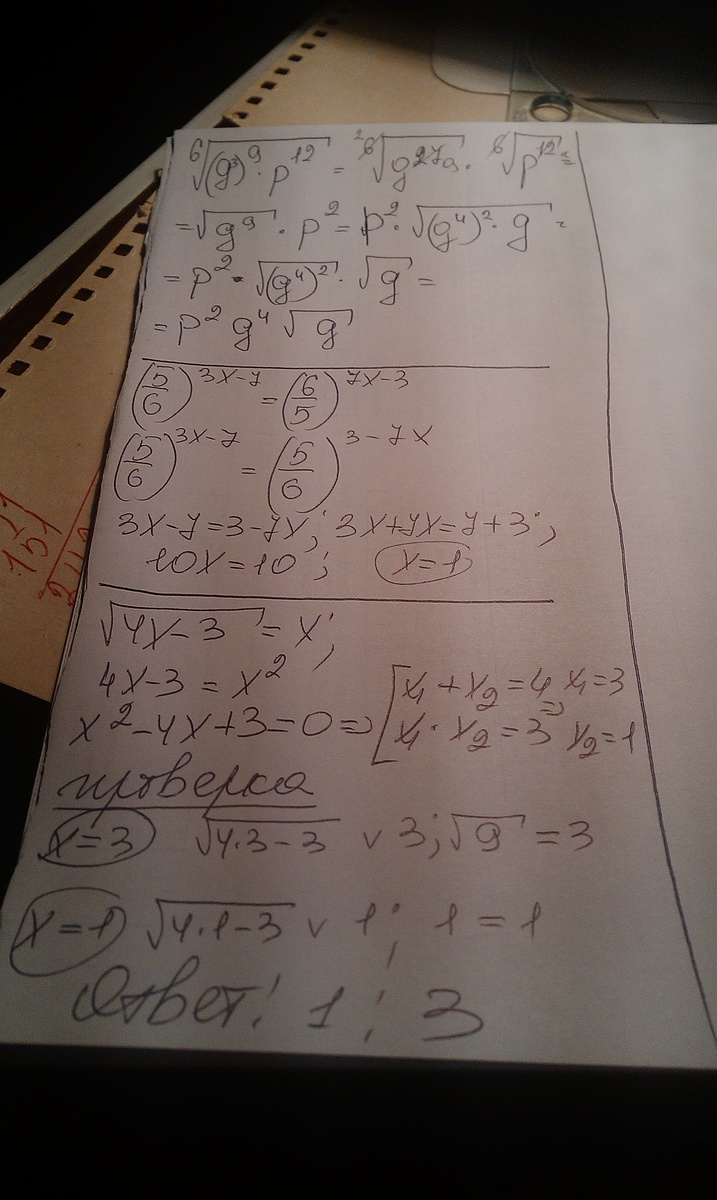 ⁶√((g³)⁹ · p¹²) = ²⁶√(g²⁷⁹) · ⁶√(p¹²) =
= √(g⁹) · p² = p² · √((g⁴)² · g) =
= p² · √((g⁴)²) · √g =
= p² g⁴ √g
(5/6)^(3x-7) = (6/5)^(7x-3)
(5/6)^(3x-7) = (5/6)^(3-7x)
3x-7=3-7x; 3x+7x=7+3;
10x=10; x=1
√(4x-3) = x;
4x-3 = x²
x²-4x+3=0 => [x₁+x₂=4 x₁=3
x₁·x₂=3 => x₂=1
проверка
x=3 √(4·3-3) v 3; √9 = 3
x=1 √(4·1-3) v 1; 1 = 1
Ответ: 1; 3
151